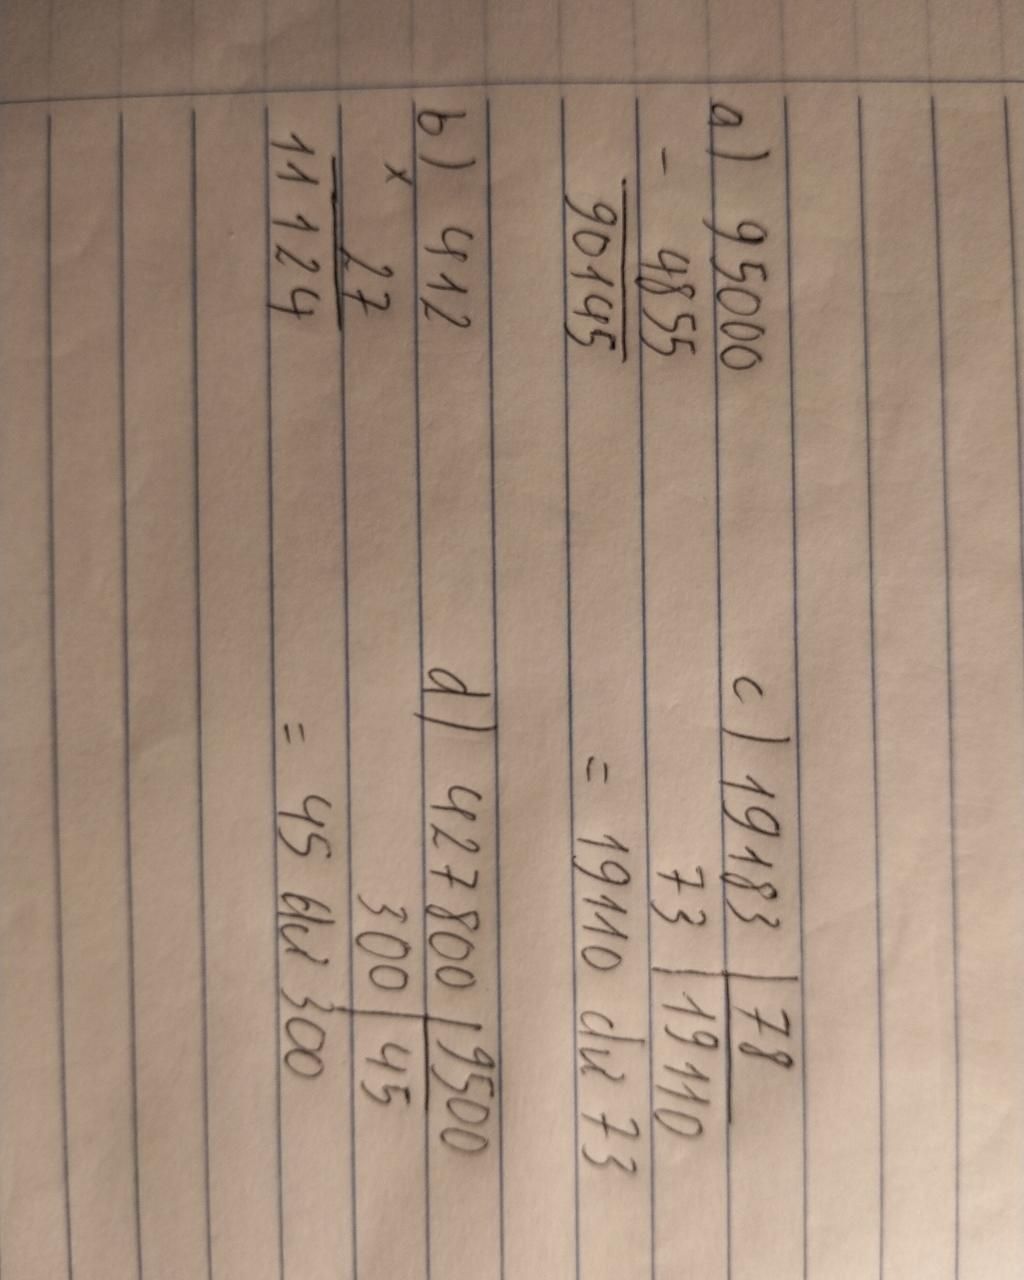 a) 95000
- 4855
90145
b) 412
x 27
11124
c) 19183 | 78
73 | 19110
= 19110 dư 73
d) 427800 | 9500
300 | 45
= 45 dư 300